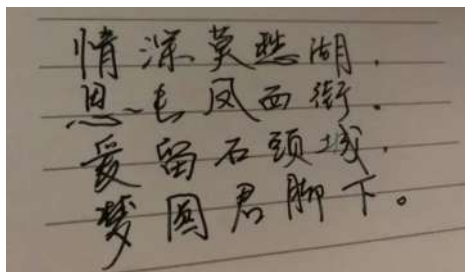 情深莫愁湖.
思凤西街.
爱留石头城.
梦圆君脚下。